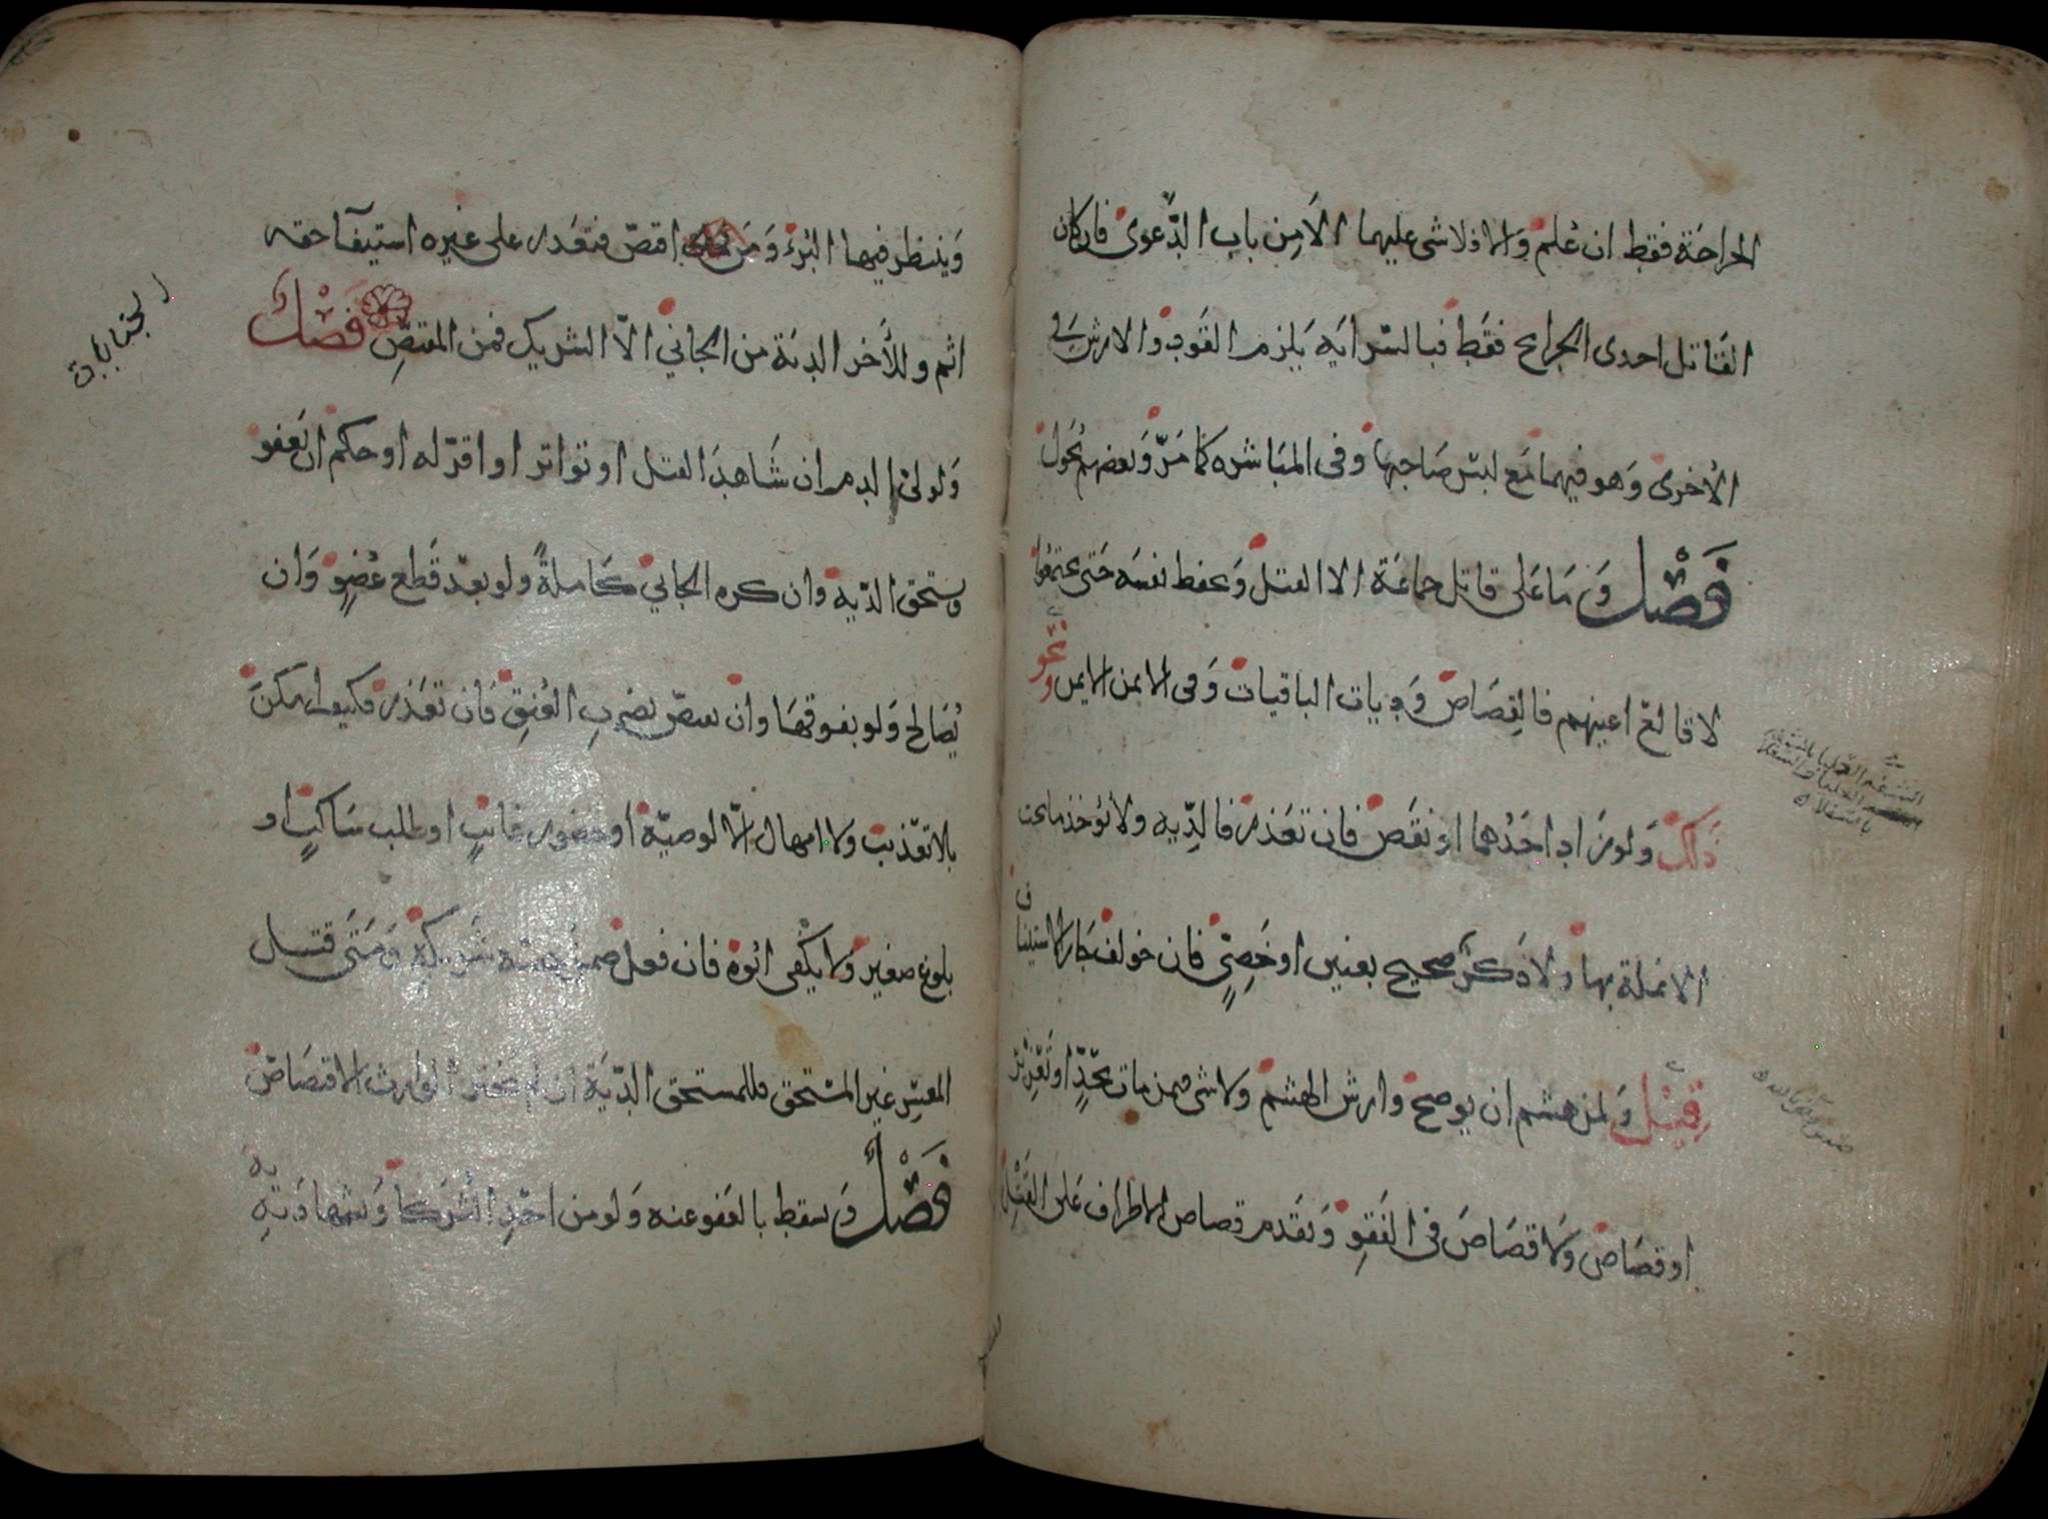 الجراحة فقط ان علم والا فلا شى عليهما الا من باب الدعوى فان كان
القاتل احدى الجرائح فقط فبالسراية يلزم القود والارش في
الأخرى وهو فيهما مع لبس صاحبها وفى المباشره كما مرّ وبعضهم يحول
فَصْل وما على قاتل جماعة الا القتل ويحفظ نفسه حتى يجتمعوا
لا قالع اعينهم فالقصاص وديات الباقيات وفى الايمن الايمن ونحو
ذلك ولو زاد احدهما او نقص فان تعذر فالدّيه ولا يؤخذ ما تحت
الانملة بها ولا ذكر صحيح بعنين او خصيٍّ فان خولف جاز الاستيناف
قيل ولمن هشم ان يوضح وارش الهشم ولا شى فيمن مات بحدٍّ او تعزير
او قصاص ولا قصاص فى الفقوِ ويقدم قصاص الاطراف على القتل
وينتظر فيها البرء ومن اقتصّ فتعذر على غيره استيفآ حقه
اثم وللأخر الدية من الجاني الاّ الشريك فمن المقتصِّ فَصْل
ولولىّ الدم ان شاهد القتل او تواتر او اقرّ له او حكم ان يعفو
ويستحق الدّيه وان كره الجاني كاملةً ولو بعد قطع عضوٍ وان
يُصالح ولو بفوقها وان يقتصّ بضربِ العُنقِ فان تعذر فكيف امكن
بلا تعذيب ولا امهال الاّ لوصيّة او حضور غائبٍ او طلب ساكتٍ او
بلوغ صغير ولا يكفى ابُوه فان فعل ضمن حصة شريكهِ ومتى قتل
المعسِر غير المستحق فللمستحق الدّيَة ان لم يختر الوارث الاقتصاص
فَصْل ويسقط بالعفو عنه ولو من احدِ الشركا وبشهادته
الجنايات